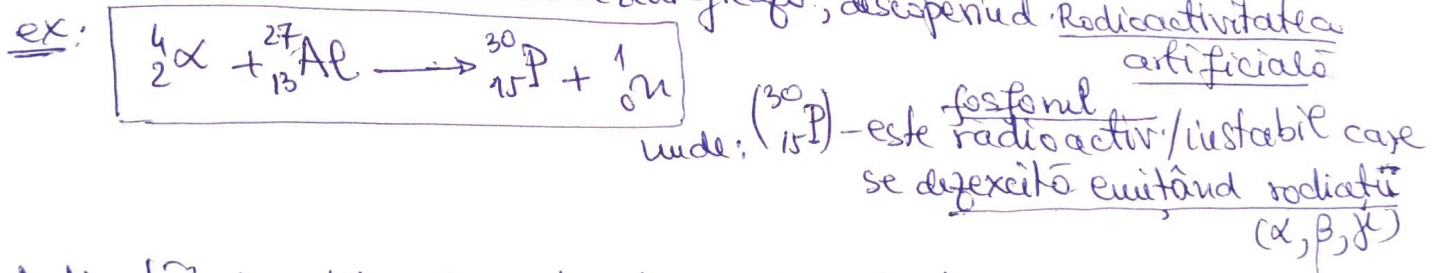 , descoperind Radioactivitatea
artificială
ex: ⁴₂α + ²⁷₁₃Al ⟶ ³⁰₁₅P + ¹₀n
unde: (³⁰₁₅P) – este fosforul radioactiv/instabil care
se dezexcită emițând radiații
(α, β, γ)